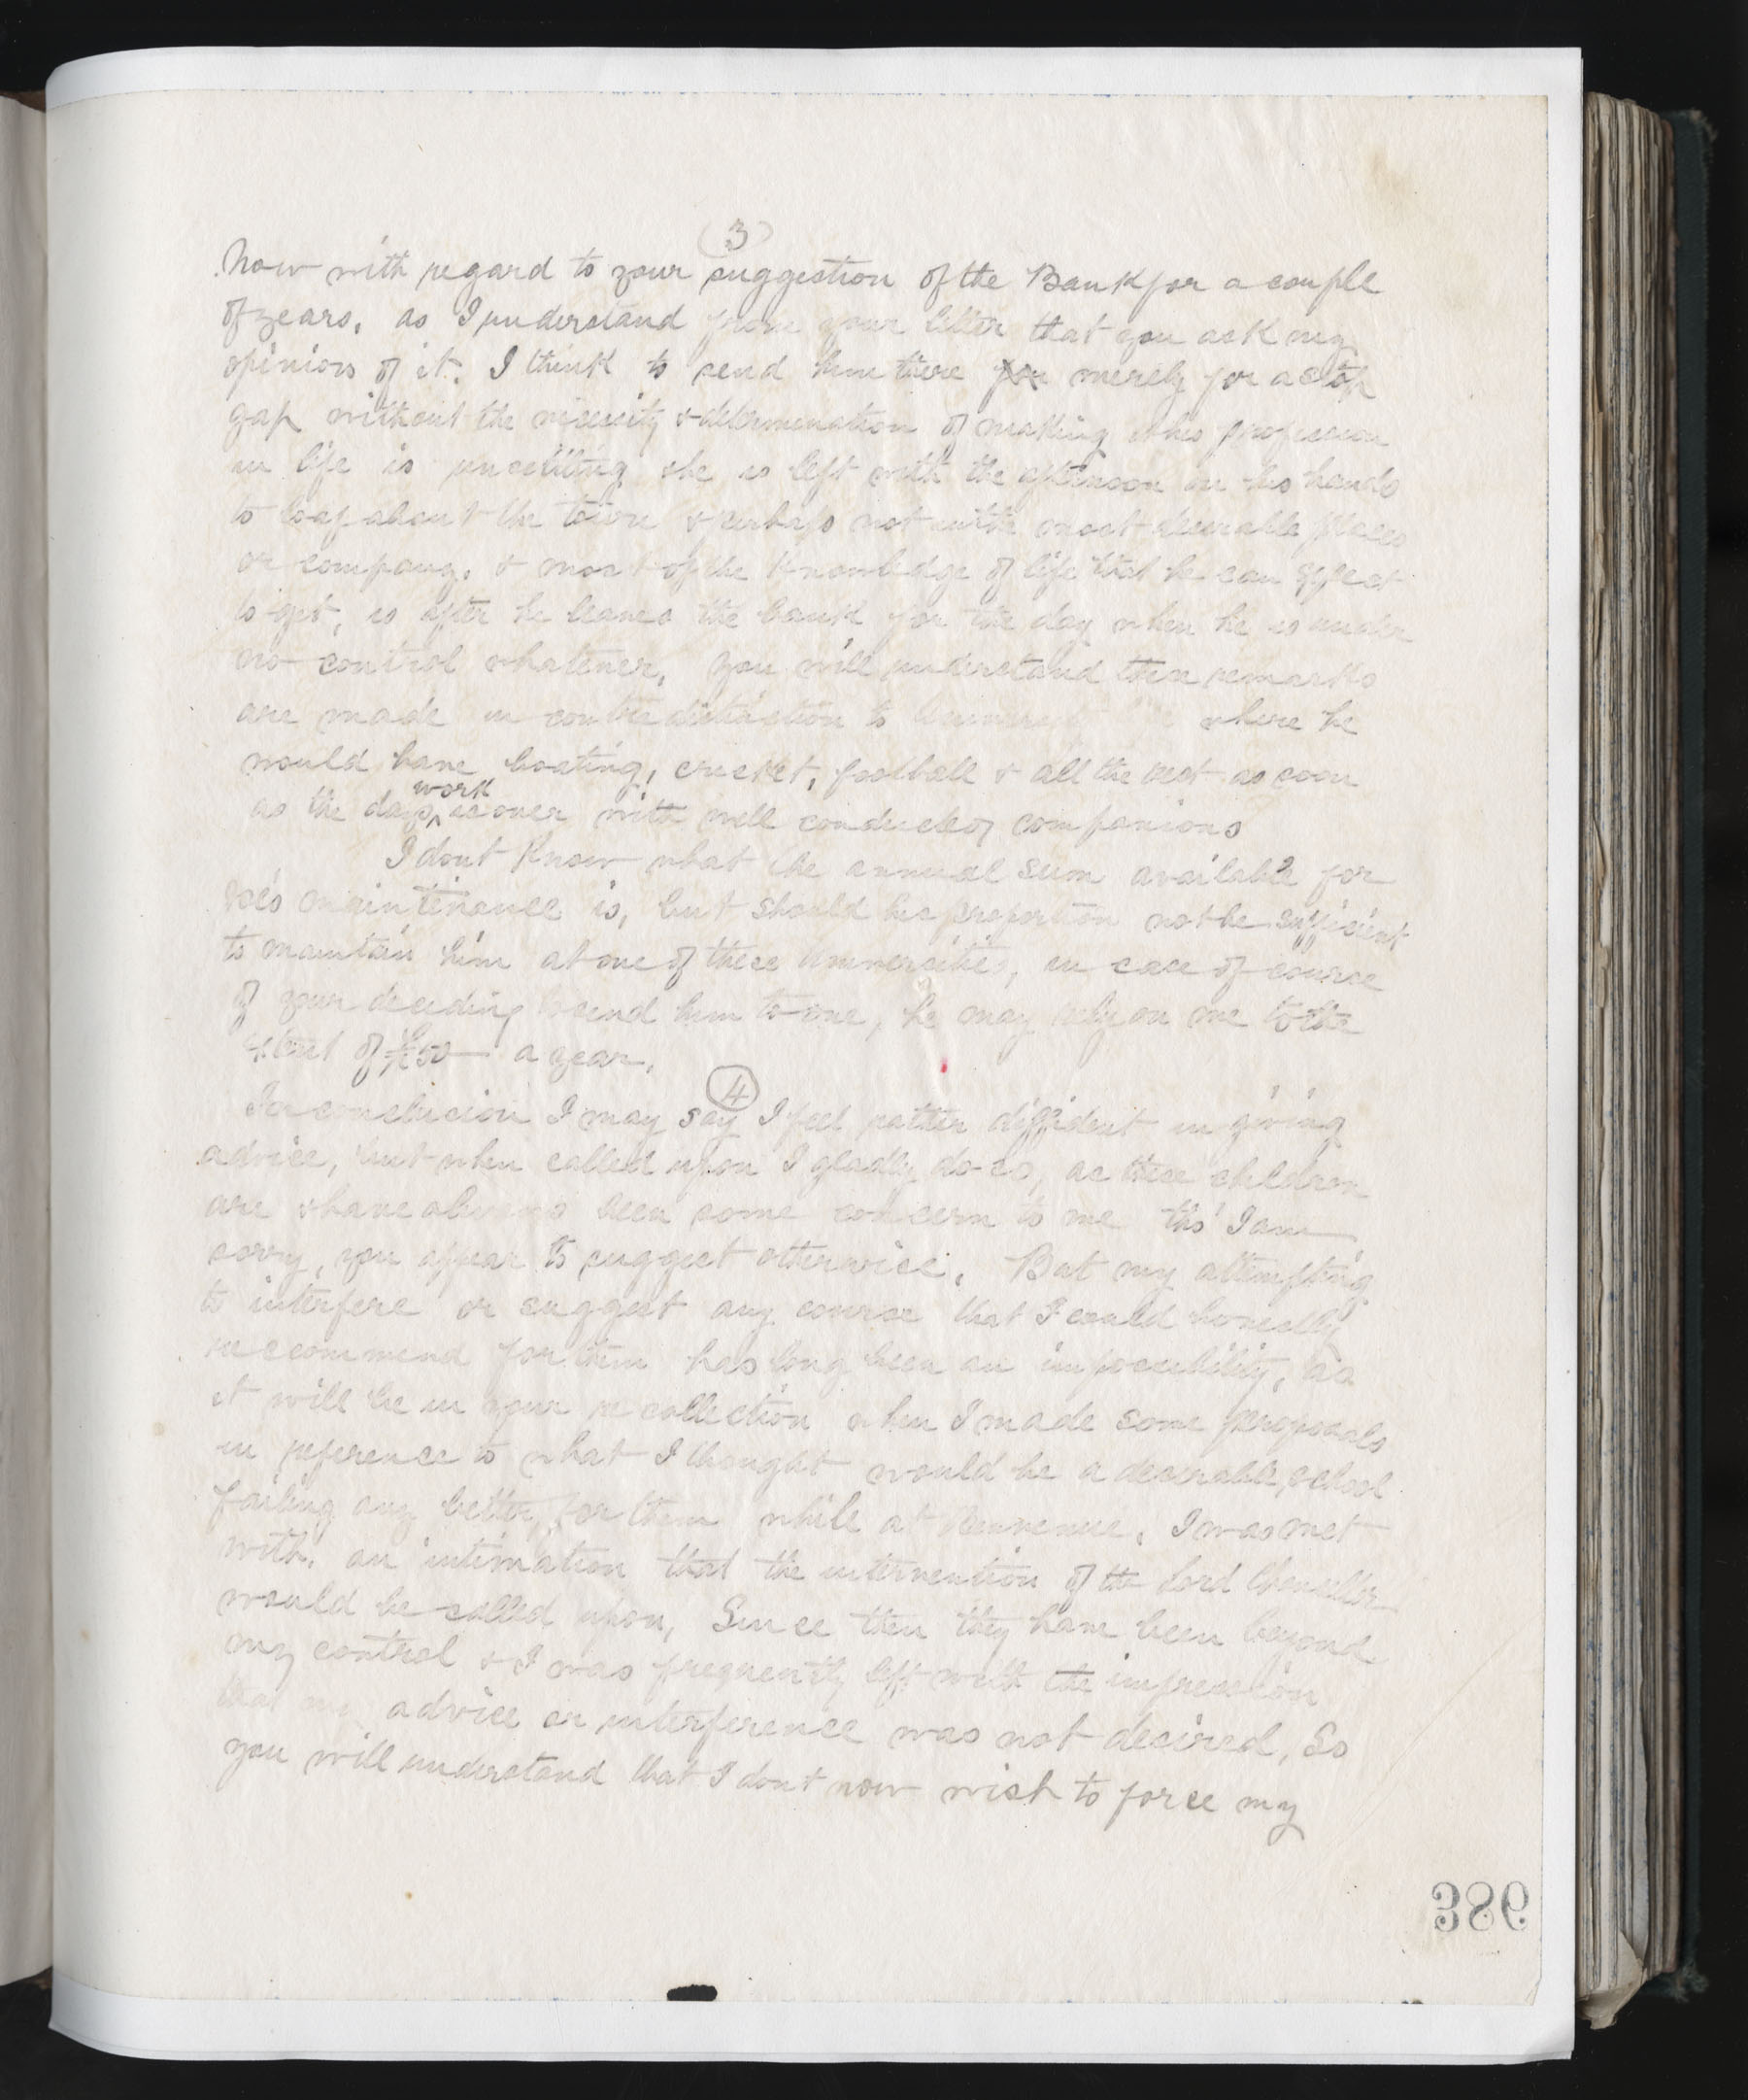 (3)
Now with regard to your suggestion of the Bank for a couple
of years, as I understand from your letter that you ask my
opinion of it. I think to send him there for merely for a stop
gap without the necessity & determination of making it his profession
in life is unsettling & he is left with the afternoon on his hands
to loaf about the town & perhaps not in the most desirable places
or company, & most of the knowledge of life that he can expect
to get, is after he leaves the bank for the day when he is under
no control whatever, you will understand these remarks
are made in contradistinction to where he
would have boating, cricket, football & all the rest as soon
as the days work is over with well conducted companions
I dont know what the annual sum available for
Joe's maintenance is, but should his proportion not be sufficient
to maintain him at one of these Universities, in case of course
of your deciding to send him to one, he may rely on me to the
extent of £50 a year.
(4)
In conclusion I may say I feel rather diffident in giving
advice, but when called upon I gladly do so, as these children
are & have always been some concern to me tho' I am
sorry, you appear to suggest otherwise. But my attempting
to interfere or suggest any course that I could honestly
reccommend for them has long been an impossibility, as
it will be in your recollection when I made some proposals
in reference to what I thought would be a desirable school
failing any better, for them while at I was met
with, an intimation that the intervention of the Lord Chancellor
would be called upon, Since then they have been beyond
my control & I was frequently left with the impression
that my advice or interference was not desired, So
you will understand that I dont now wish to force my
386